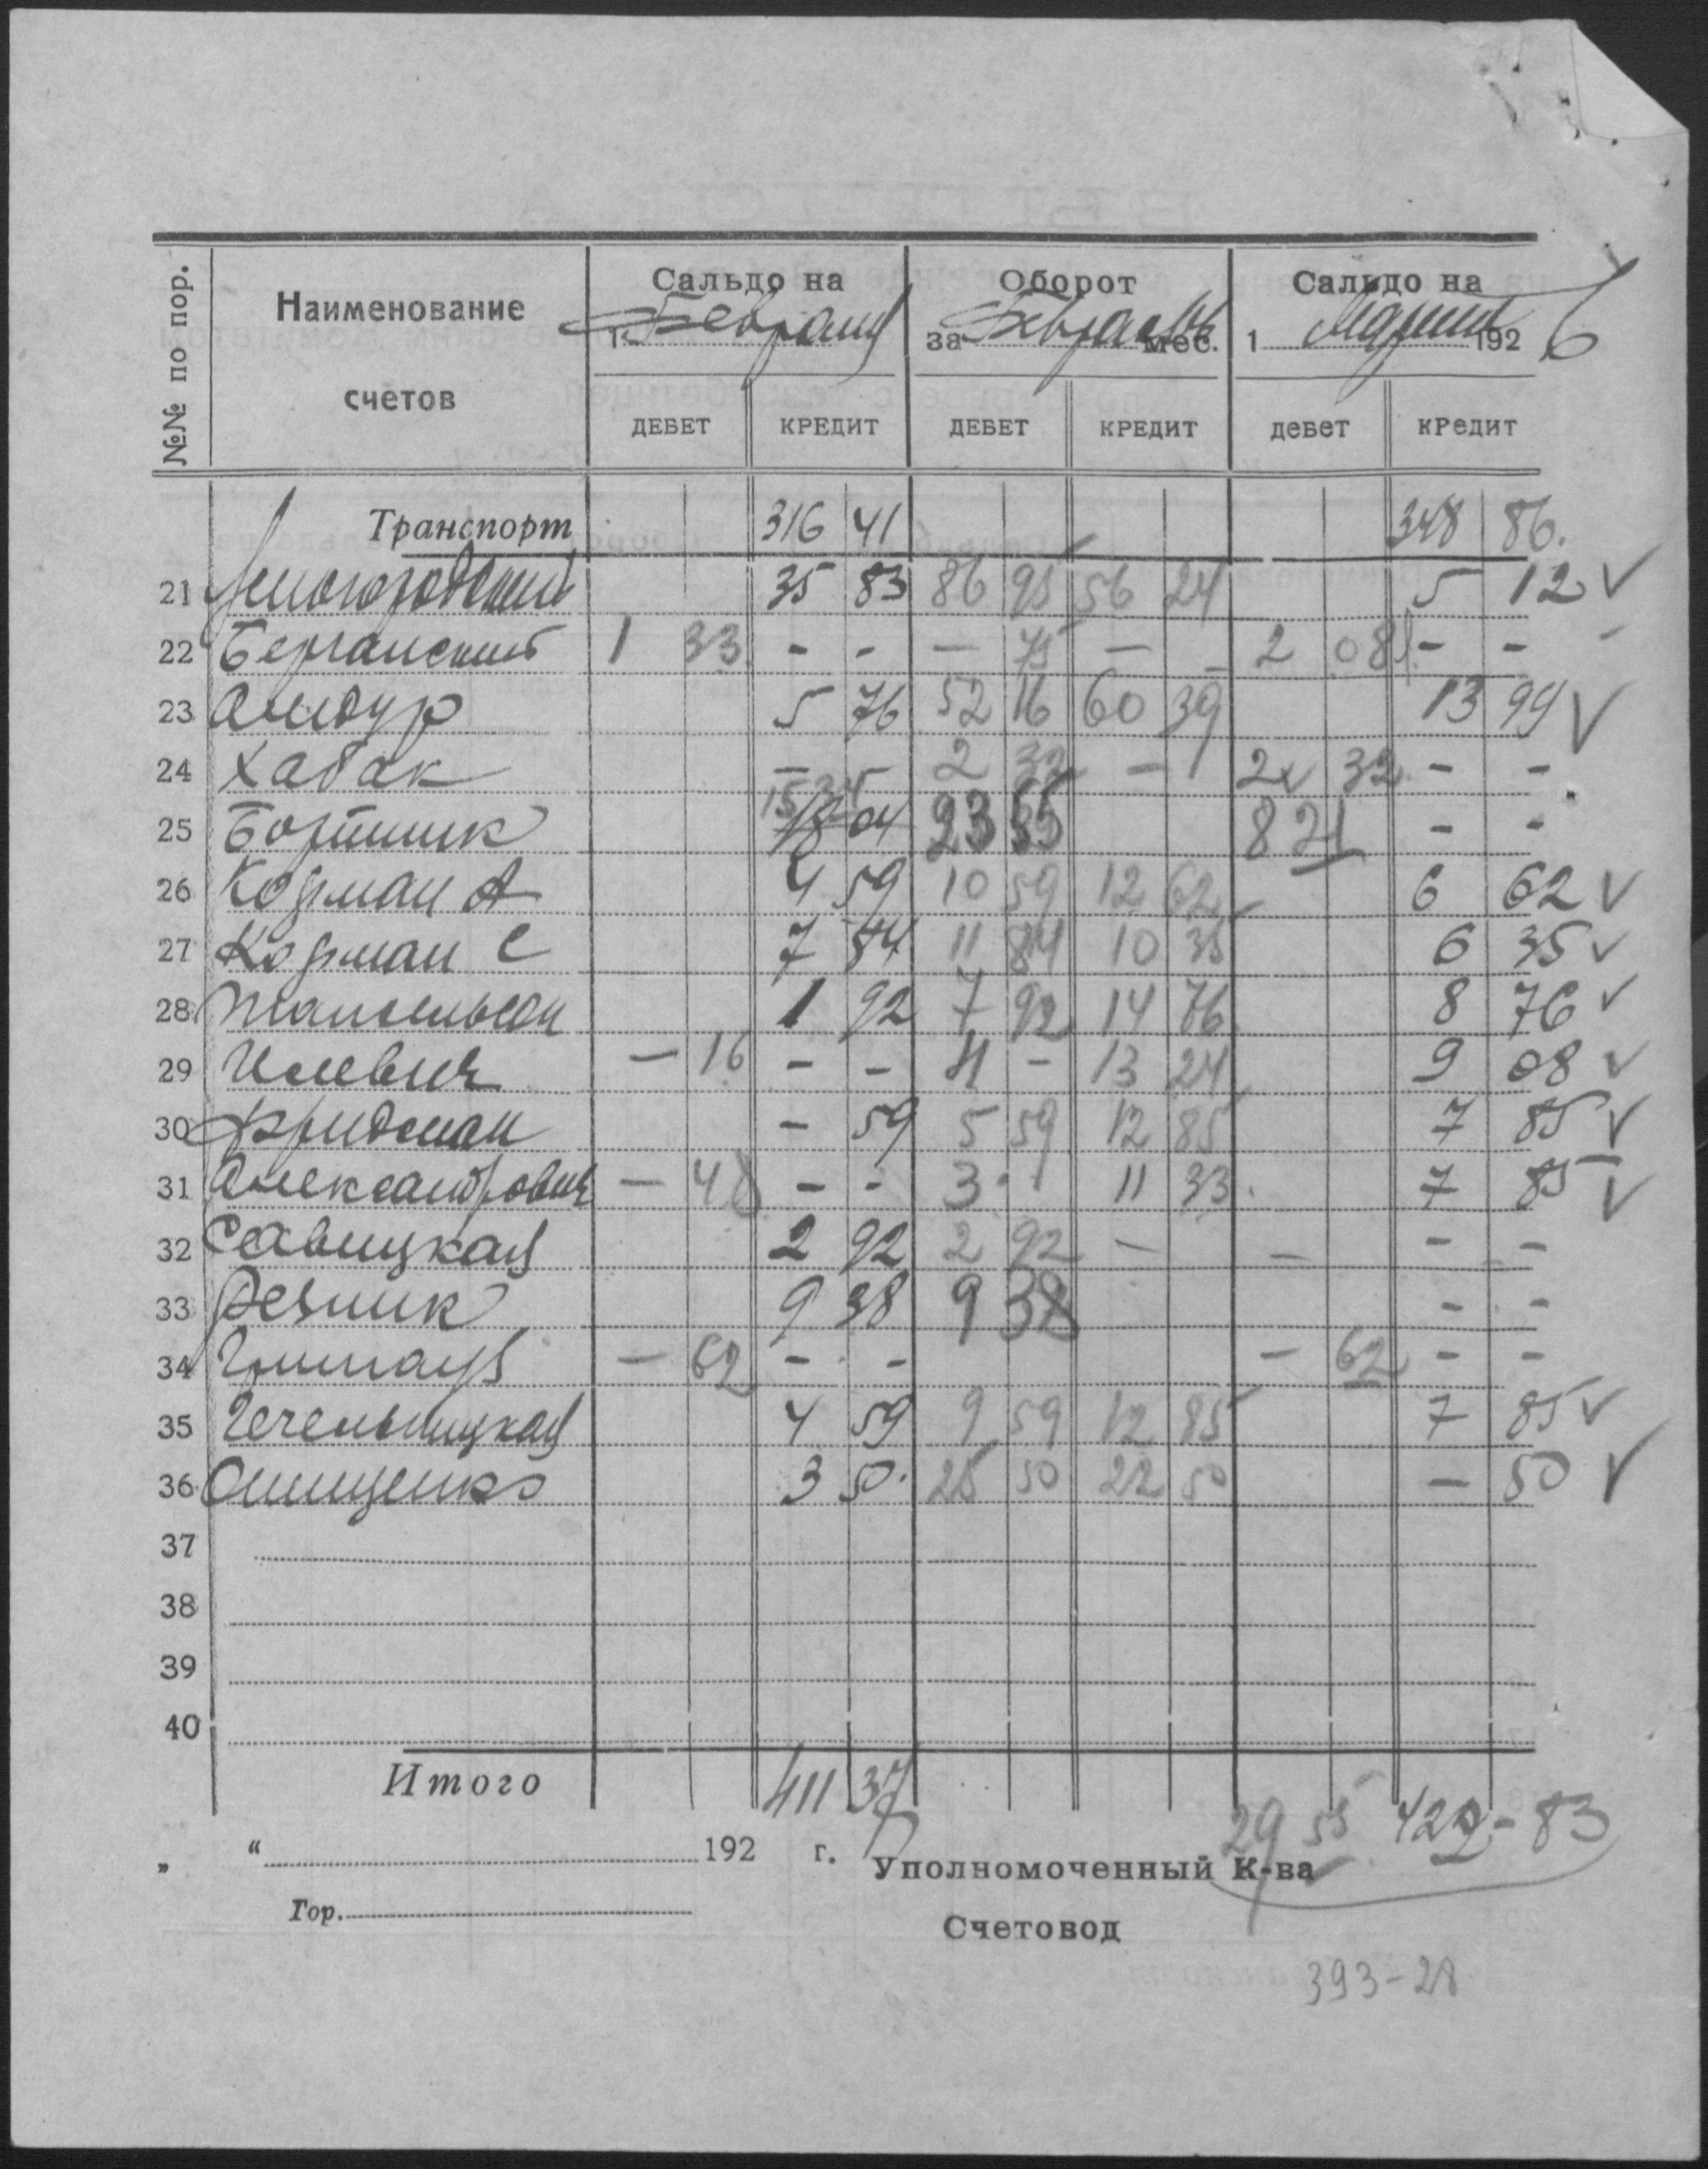 №№ по пор.
Наименование счетов
Сальдо на
1 Февраля
Оборот
за Февраль мес.
Сальдо на
1 Марта 1926
ДЕБЕТ КРЕДИТ ДЕБЕТ КРЕДИТ дебет кредит
Транспорт 316 41 348 86.
21 35 83 86 95 56 24 5 12 ✓
22 1 33 - - - 75 - - 2 08 - - -
23 Амдур 5 76 52 16 60 39 13 99 ✓
24 Хабак - - 2 32 - 2 32 - -
15 34
25 Бортник 18 04 23 55 8 21 - -
26 Корман А 4 59 10 59 12 62 6 62 ✓
27 Корман С 7 84 11 84 10 35 6 35 ✓
28 1 92 7 92 14 76 8 76 ✓
29 Илевич - 16 - - 4 - 13 24 9 08 ✓
30 Фридман - 59 5 59 12 85 7 85 ✓
31 Александрович - 48 - - 3 - 11 33 7 85 ✓
32 Савицкая 2 92 2 92 - - - -
33 Резник 9 38 9 38 - -
34 - 62 - - - 62 - -
35 Чечельницкая 4 59 9 59 12 85 7 85 ✓
36 Онищенко 3 50 25 50 22 50 - 50 ✓
37
38
39
40
Итого 411 37
29 55 422-83
„ “ 192 г. Уполномоченный К-ва
Гор.
Счетовод
393-28